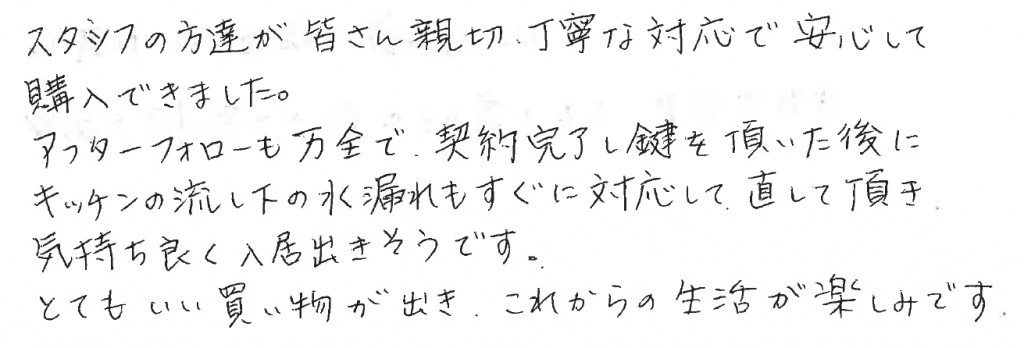 スタッフの方達が皆さん親切、丁寧な対応で安心して
購入できました。
アフターフォローも万全で、契約完了し鍵を頂いた後に
キッチンの流し下の水漏れもすぐに対応して、直して頂き、
気持ち良く入居出きそうです。
とてもいい買い物が出き、これからの生活が楽しみです.